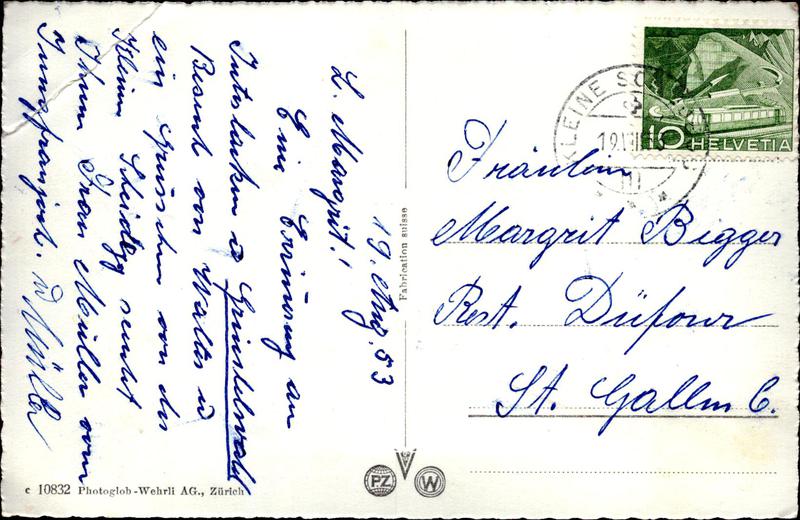 19. Aug. 53
L. Margrit!
Eine Erinerung an
Interlaken u Grindelwald
Besuch von Walter u
ein Grüsschen von der
Kleinen Scheidegg sendet
Ihnen Frau Müller vom
Jungfraujoch. u Müller
Fabrication suisse
c 10832 Photoglob-Wehrli AG., Zürich
PZ W
KLEINE SC
10 HELVETIA
Fräulein
Margrit Bigger
Rest. Düfour
St. Gallen C.